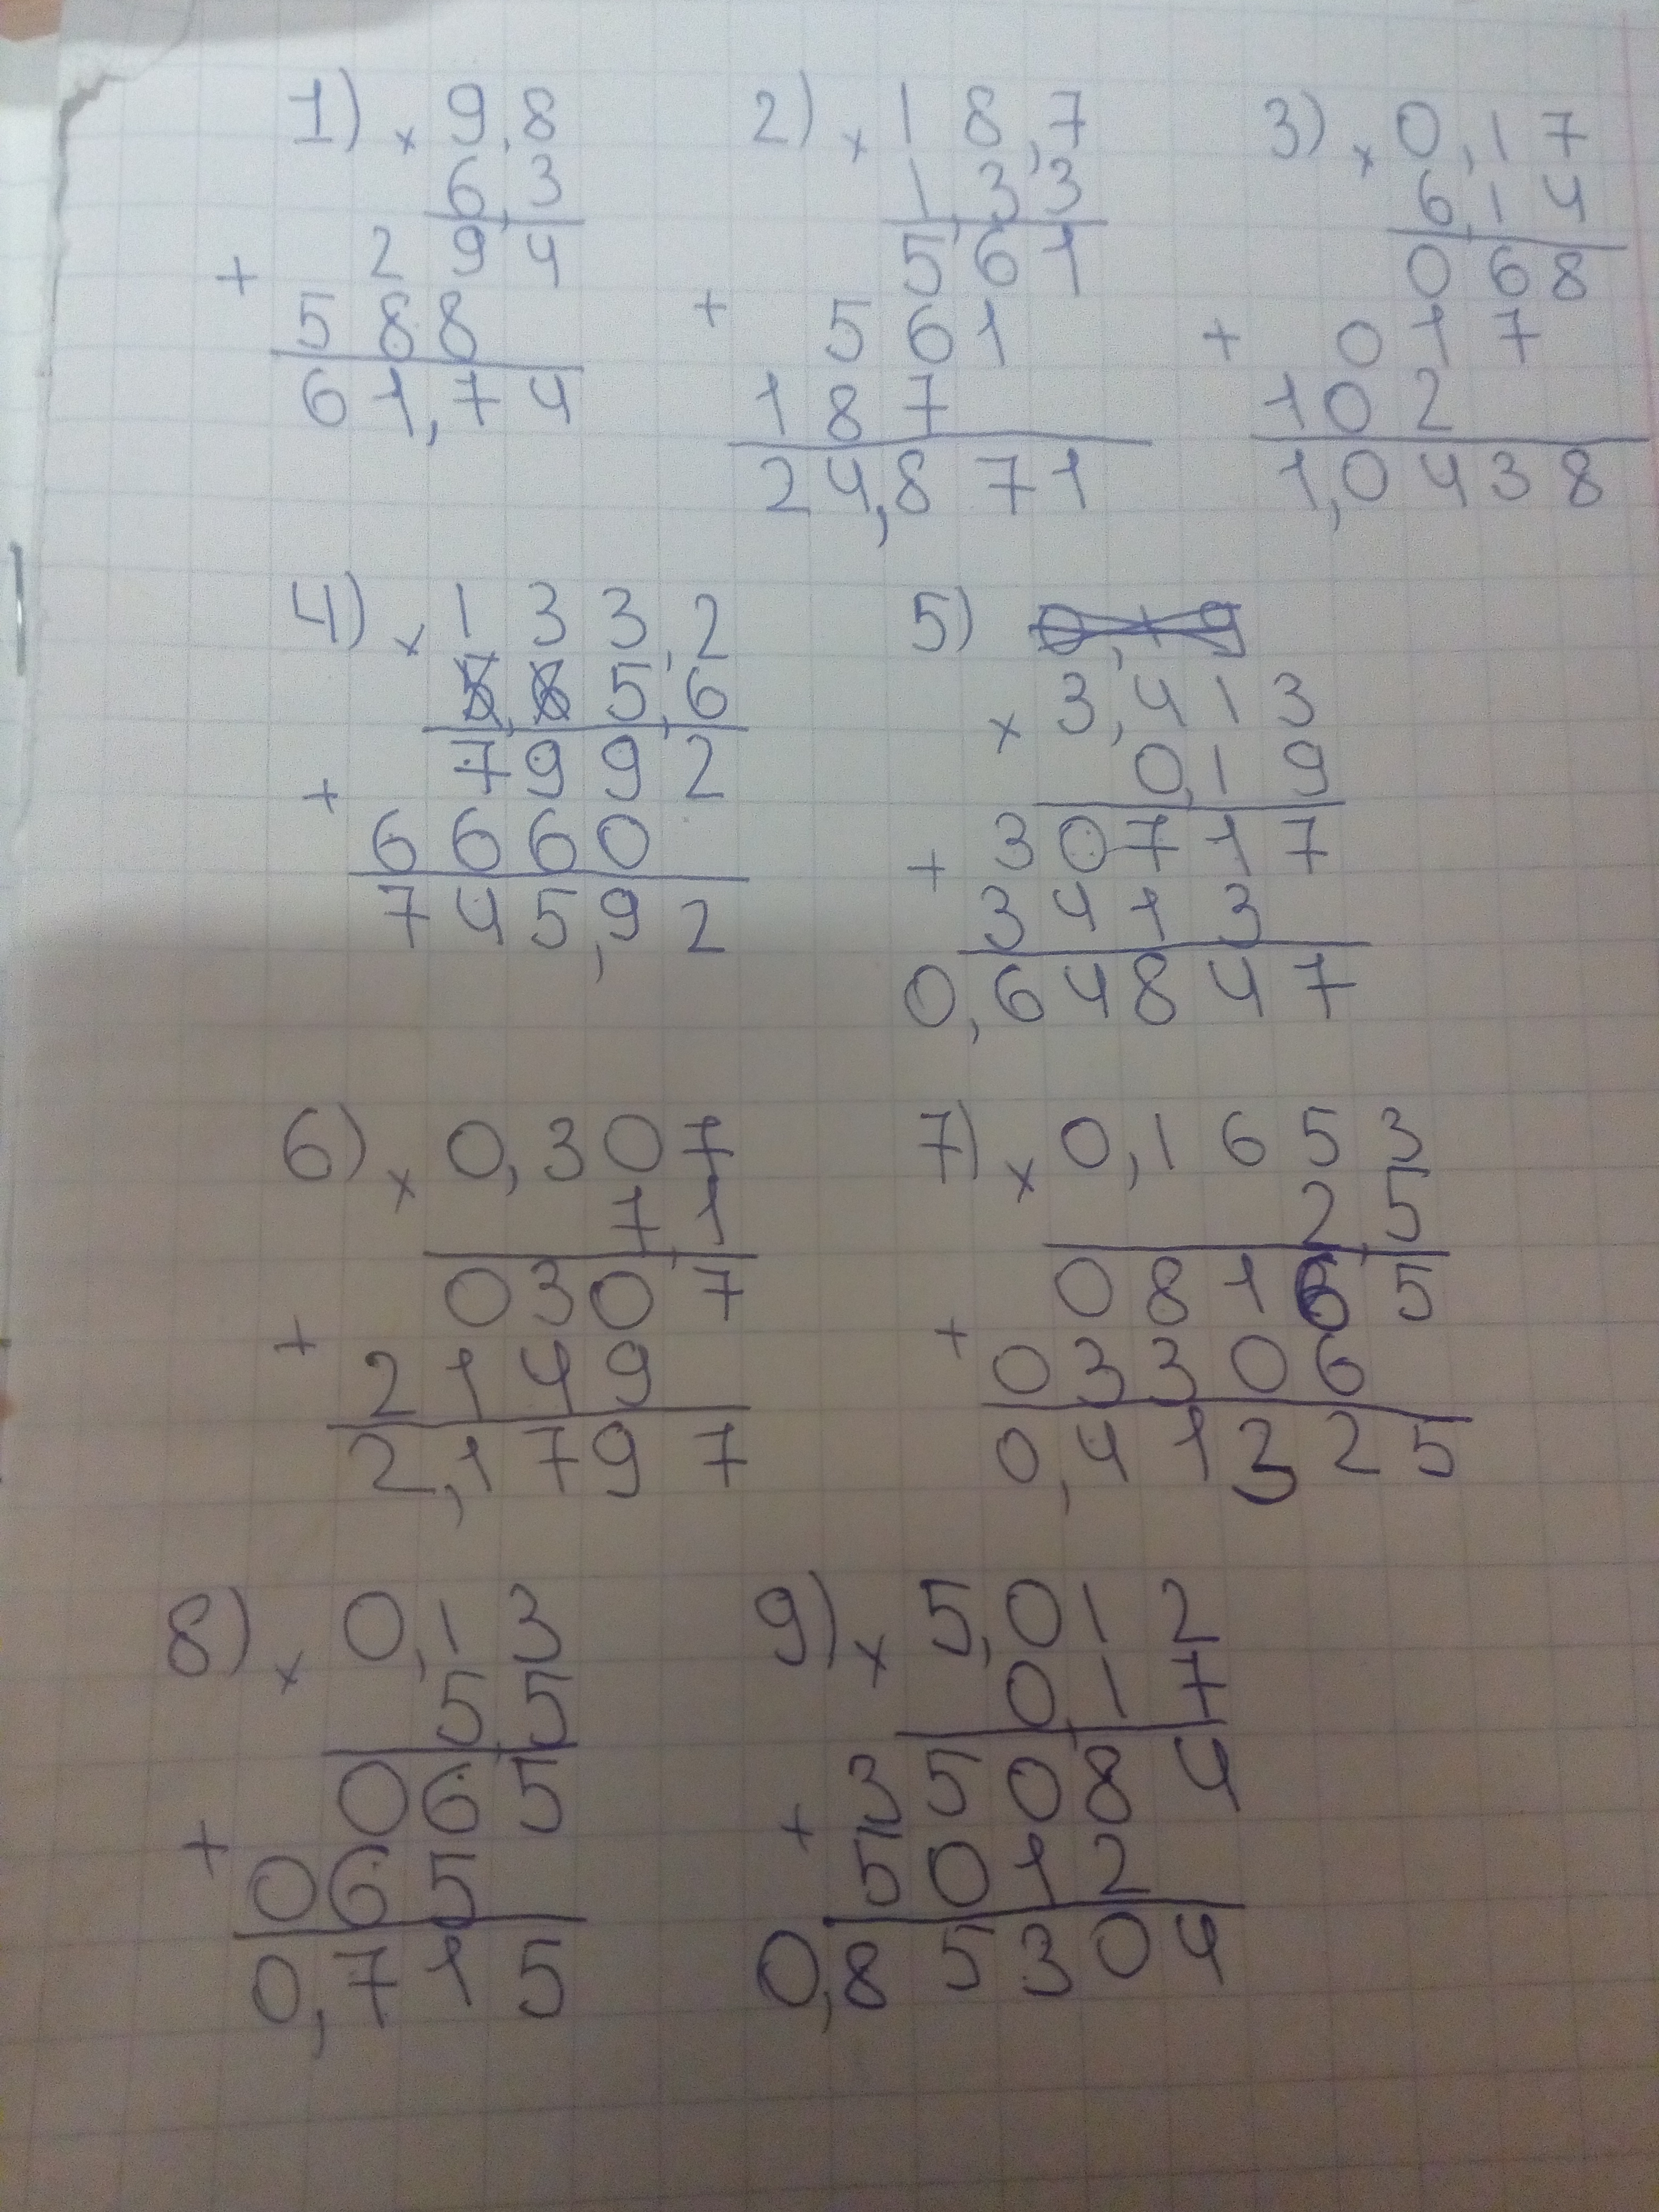 1) × 9,8
6,3
+ 294
588
61,74
2) × 18,7
1,33
561
+ 561
187
24,871
3) × 0,17
6,14
068
+ 017
102
1,0438
4) × 133,2
5,6
7992
+ 6660
745,92
5)
× 3,413
0,19
+ 30717
3413
0,64847
6) × 0,307
7,1
0307
+ 2149
2,1797
7) × 0,1653
2,5
08165
+ 03306
0,41325
8) × 0,13
5,5
065
+ 065
0,715
9) × 5,012
0,17
35084
+ 5012
0,85304